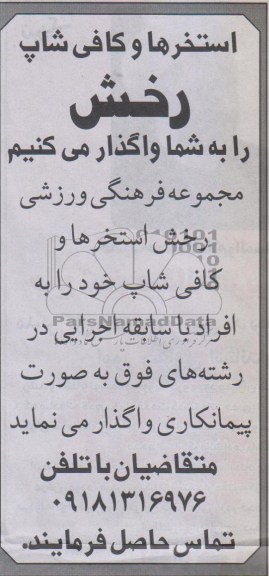 استخرها و کافی شاپ
رخش
را به شما واگذار می کنیم
مجموعه فرهنگی ورزشی
رخش استخرها و
کافی شاپ خود را به
ParsNamadData
افراد با سابقه اجرایی در
رشته‌های فوق به صورت
پیمانکاری واگذار می نماید
متقاضیان با تلفن
۰۹۱۸۱۳۱۶۹۷۶
تماس حاصل فرمایند.